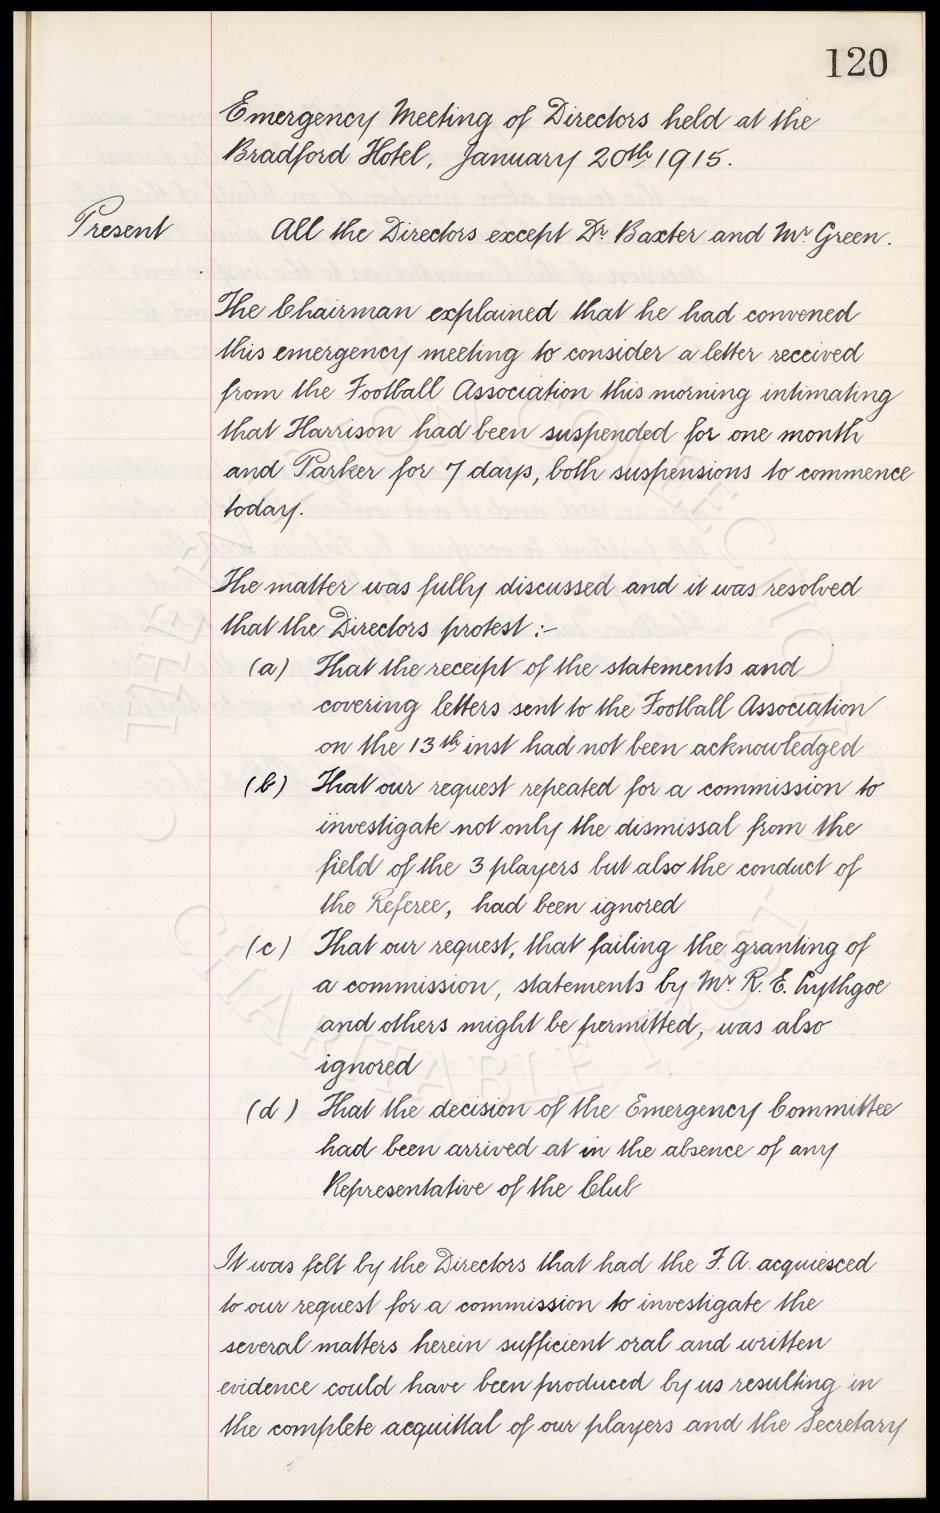 120
Emergency Meeting of Directors held at the
Bradford Hotel, January 20th 1915.
Present All the Directors except Dr. Baxter and Mr Green.
The Chairman explained that he had convened
this emergency meeting to consider a letter received
from the Football Association this morning intimating
that Harrison had been suspended for one month
and Parker for 7 days, both suspensions to commence
today.
The matter was fully discussed and it was resolved
that the Directors protest :-
(a) That the receipt of the statements and
covering letters sent to the Football Association
on the 13th inst had not been acknowledged
(b) That our request repeated for a commission to
investigate not only the dismissal from the
field of the 3 players but also the conduct of
the Referee, had been ignored
(c) That our request, that failing the granting of
a commission, statements by Mr. R. E. Lythgoe
and others might be permitted, was also
ignored
(d) That the decision of the Emergency Committee
had been arrived at in the absence of any
Representative of the Club
It was felt by the Directors that had the F.A. acquiesced
to our request for a commission to investigate the
several matters herein sufficient oral and written
evidence could have been produced by us resulting in
the complete acquittal of our players and the Secretary